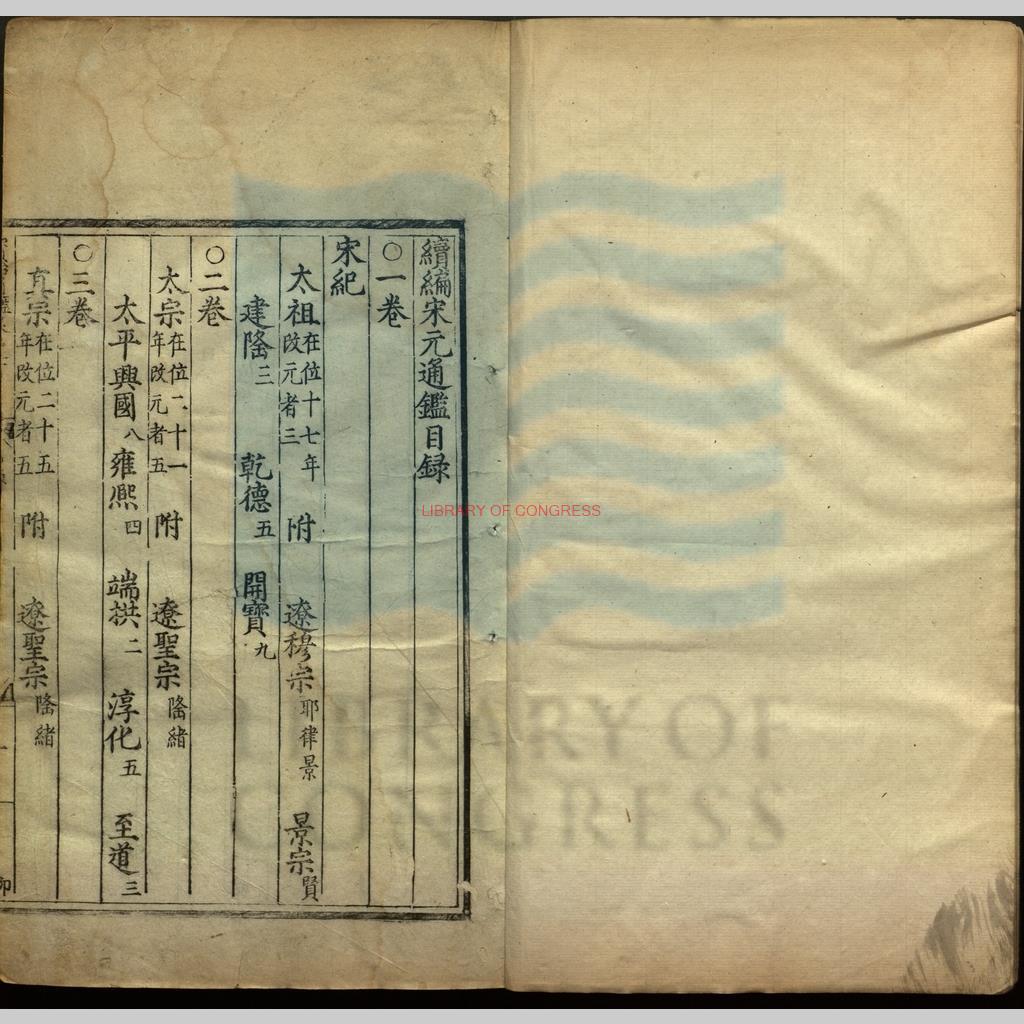 續編宋元通鑑目録
○一卷
宋紀
太祖在位十七年改元者三 附 遼穆宗耶律景 景宗賢
建隆三 乾德五 開寶九
○二卷
太宗在位二十一年改元者五 附 遼聖宗隆緒
太平興國八 雍熈四 端拱二 淳化五 至道三
○三卷
真宗在位二十五年改元者五 附 遼聖宗隆緒
LIBRARY OF CONGRESS
LIBRARY OF
CONGRESS